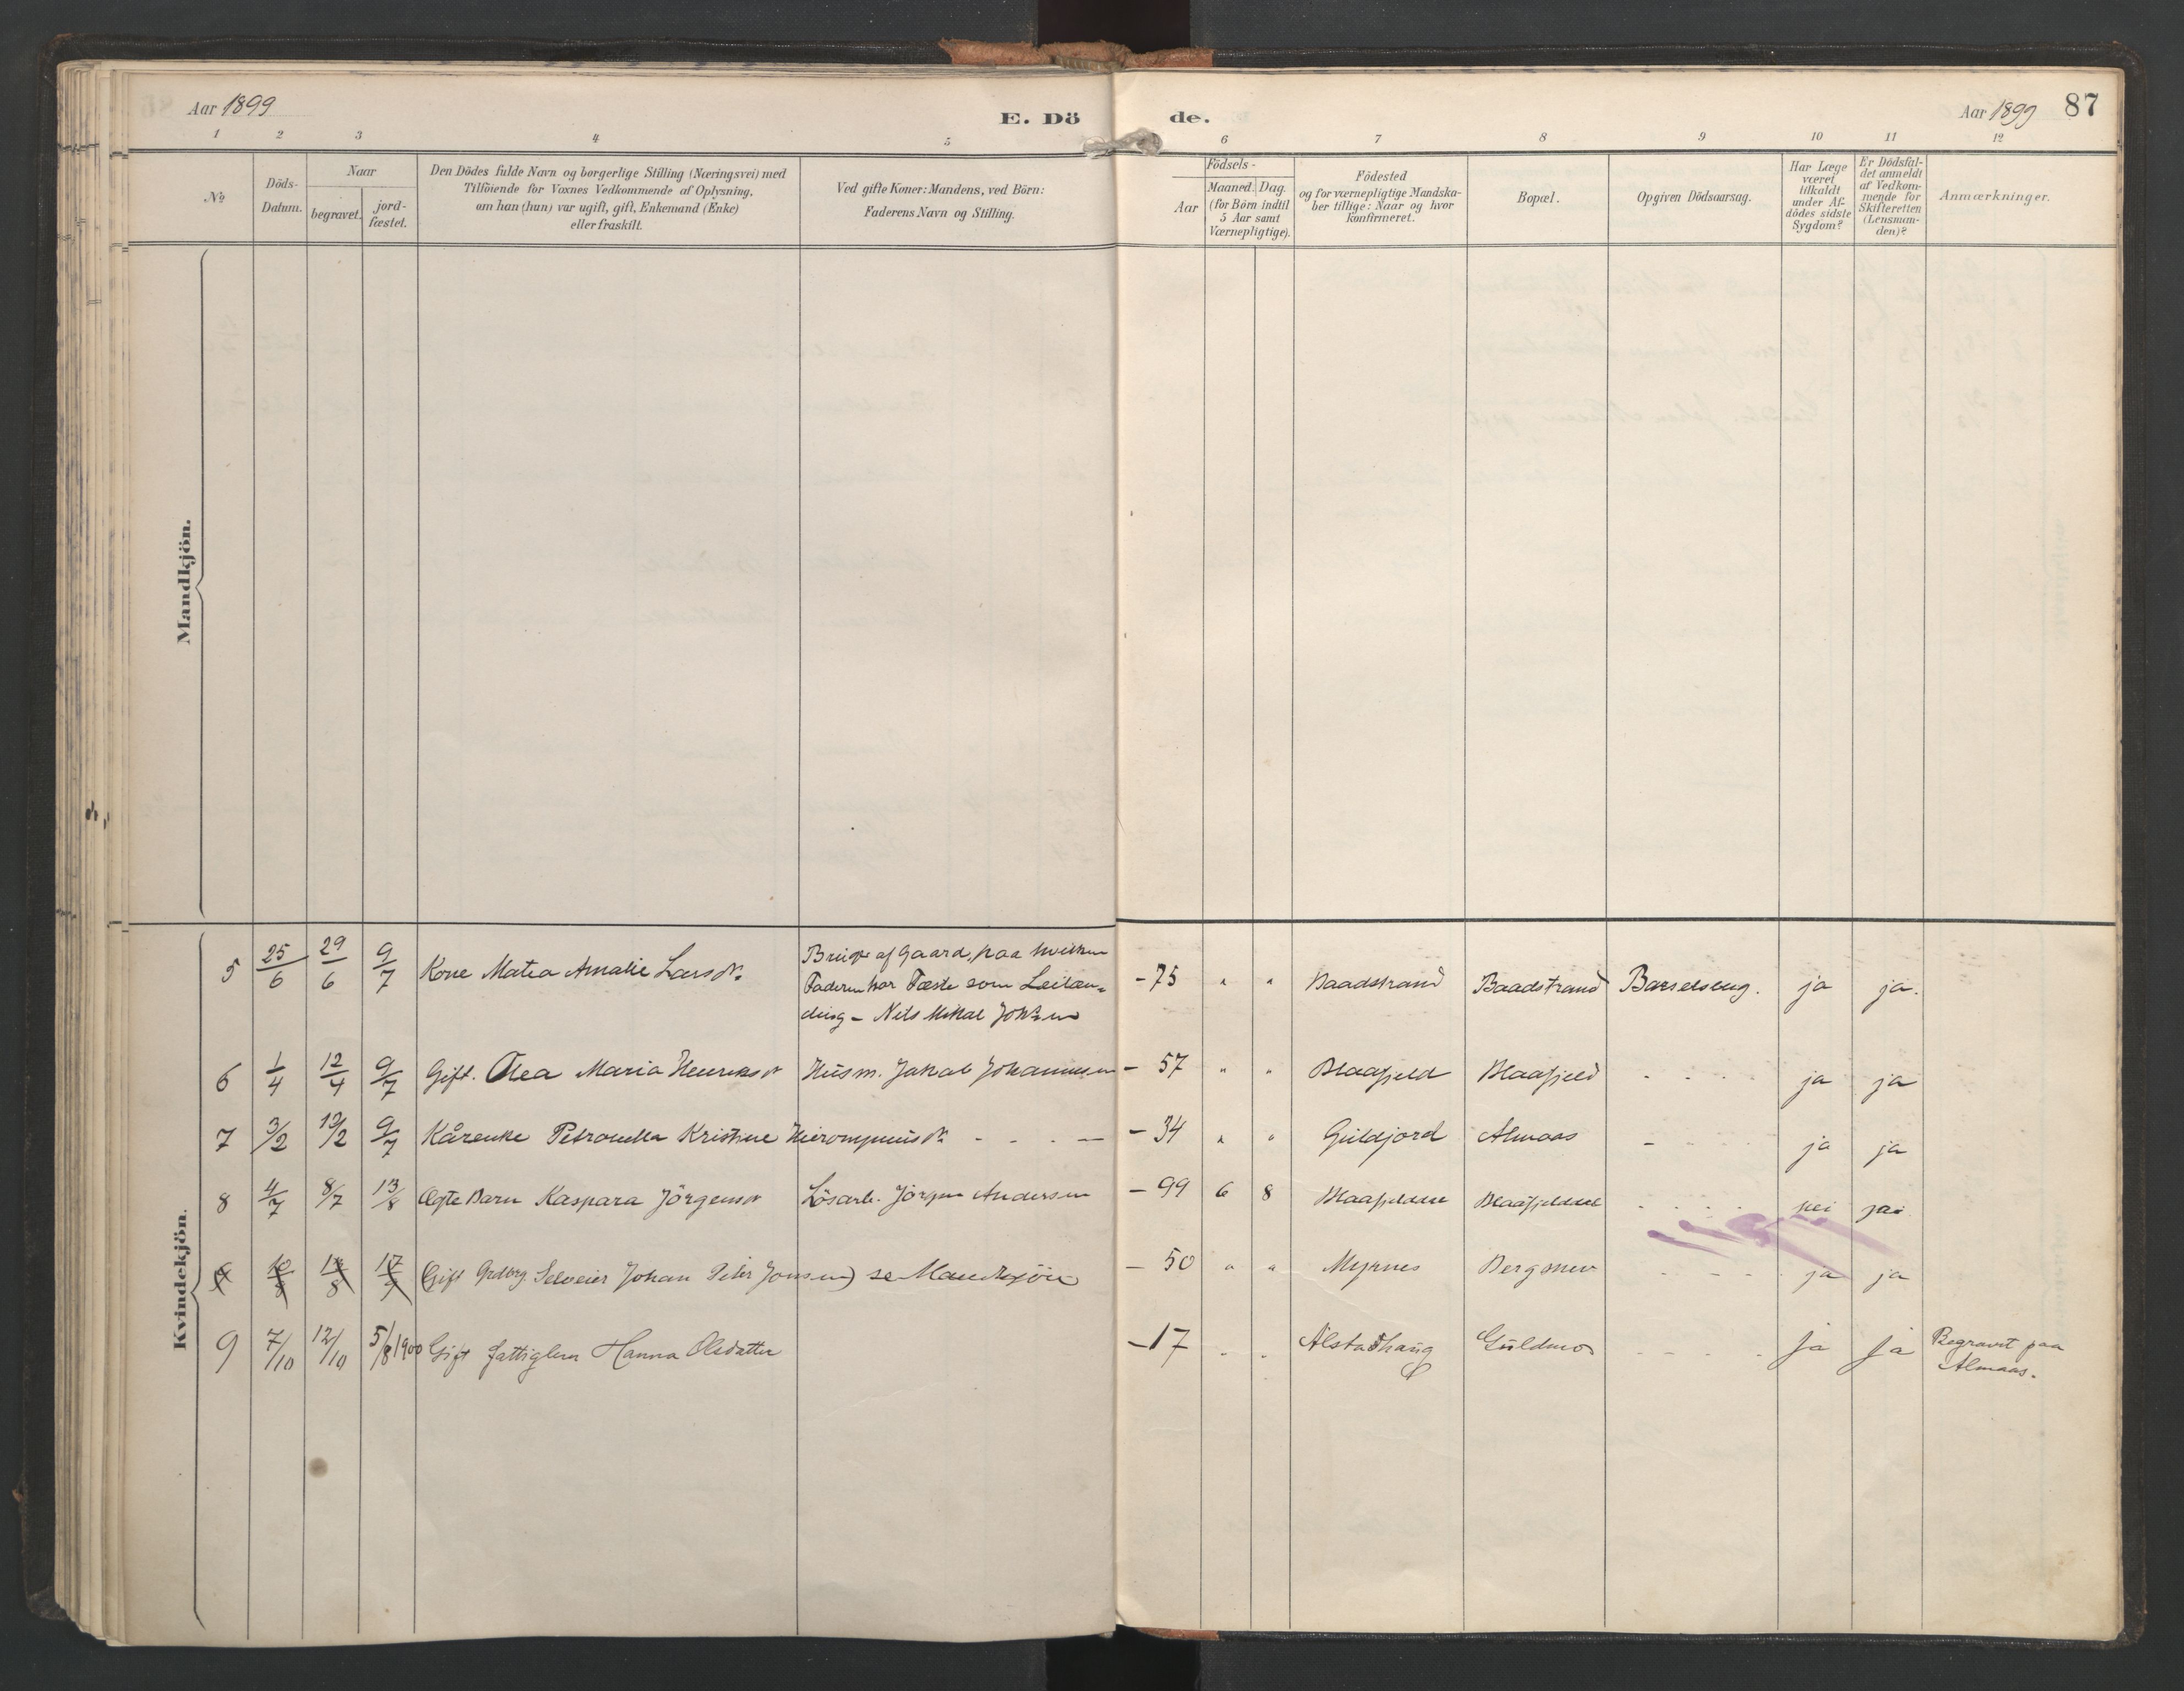 Aar 1899
E. Dö de.
Aar 1899 87
1 2 3 4 5 6 7 8 9 10 11 12
№
Döds-
Datum.
Naar
begravet.
jord-
fæstet.
Den Dödes fulde Navn og borgerlige Stilling (Næringsvei) med
Tilföiende for Voxnes Vedkommende af Oplysning,
om han (hun) var ugift, gift, Enkemand (Enke)
eller fraskilt.
Ved gifte Koner: Mandens, ved Börn:
Faderens Navn og Stilling.
Födsels-
Aar
Maaned. Dag.
(for Börn indtil
5 Aar samt
Værnepligtige).
Födested
og for værnepligtige Mandska-
ber tillige: Naar og hvor
konfirmeret.
Bopæl.
Opgiven Dödsaarsag.
Har Læge
været
tilkaldt
under Af-
dödes sidste
Sygdom?
Er Dödsfal-
det anmeldt
af Vedkom-
mende for
Skifteretten
(Lensman-
den)?
Anmærkninger.
Mandkjön.
Kvindekjön.
5 25/6 29/6 9/7 Kone Matea Amalie Larsdr. Bruger af Gaard, paa hvilken
Faderen har Fæste som Leilæn-
ding - Nils Mikal Johnsen
-75 " " Baadstrand Baadstrand Barselseng. ja ja.
6 1/4 12/4 9/7 Gift. Olea Maria Henriksdr Husm. Jakob Johannesen - 57 " " Blaafjeld Blaafjeld - - - - ja ja
7 3/2 13/2 9/7 Kårenke Petronella Kristine Hieronymusdr. - - - - - 34 " " Guldjord Almaas - - - - ja ja
8 4/7 8/7 13/8 Ægte Barn Kaspara Jörgensdr Lösarb. Jörgen Andersen - 99 6 8 Blaafjeldne Blaafjeldne - - - - nei ja
Gift Grdbrg Selveier Johan Peter Jonsen) se Mandkjön - 50 " " Myrnes - - - - ja ja
9 7/10 12/10 5/8 1900 Gift fattiglem Hanna Olsdatter -17 " " Alstadhaug Guldmo - - - - ja ja Begravet paa
Almaas.